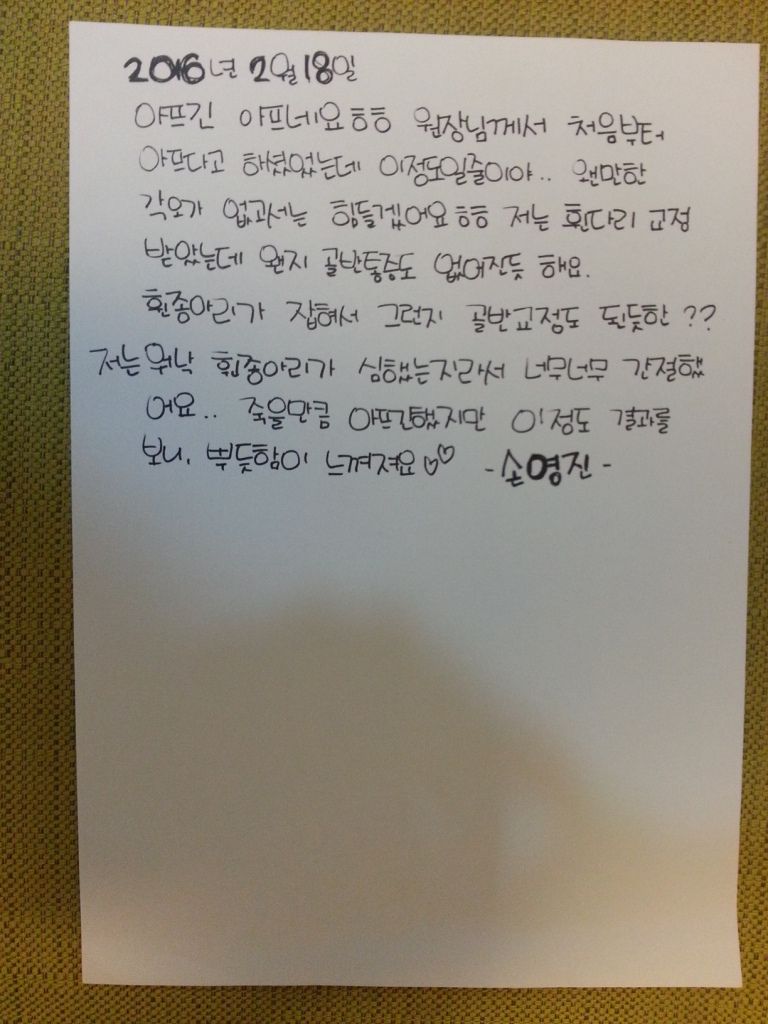 2016년 2월 18일
아프긴 아프네요ㅎㅎ 원장님께서 처음부터
아프다고 하셨었는데 이정도일줄이야.. 왠만한
각오가 없과서는 힘들겠어요ㅎㅎ 저는 휜다리 교정
받았는데 왠지 골반통증도 없어진듯 해요.
휜종아리가 잡혀서 그런지 골반교정도 된듯한 ??
저는 워낙 휜종아리가 심했는지라서 너무너무 간절했
어요.. 죽을만큼 아프긴했지만 이정도 결과를
보니, 뿌듯함이 느껴져요♡♡ -손영진-